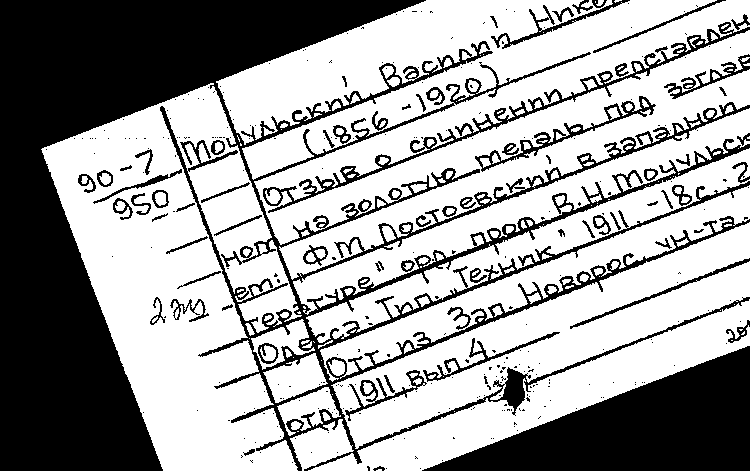 90-7
950
2 экз
Мочульский, Василий Нико
(1856 - 1920).
Отзыв о сочинении, представлен
ном на золотую медаль, под заглав
ем: „Ф.М. Достоевский в западной
тературе" орд. проф. В.Н. Мочульск
Одесса: Тип. „Техник", 1911. - 18с.; 2
Отт. из Зап. Новорос. ун-та.
отд., 1911, вып. 4.